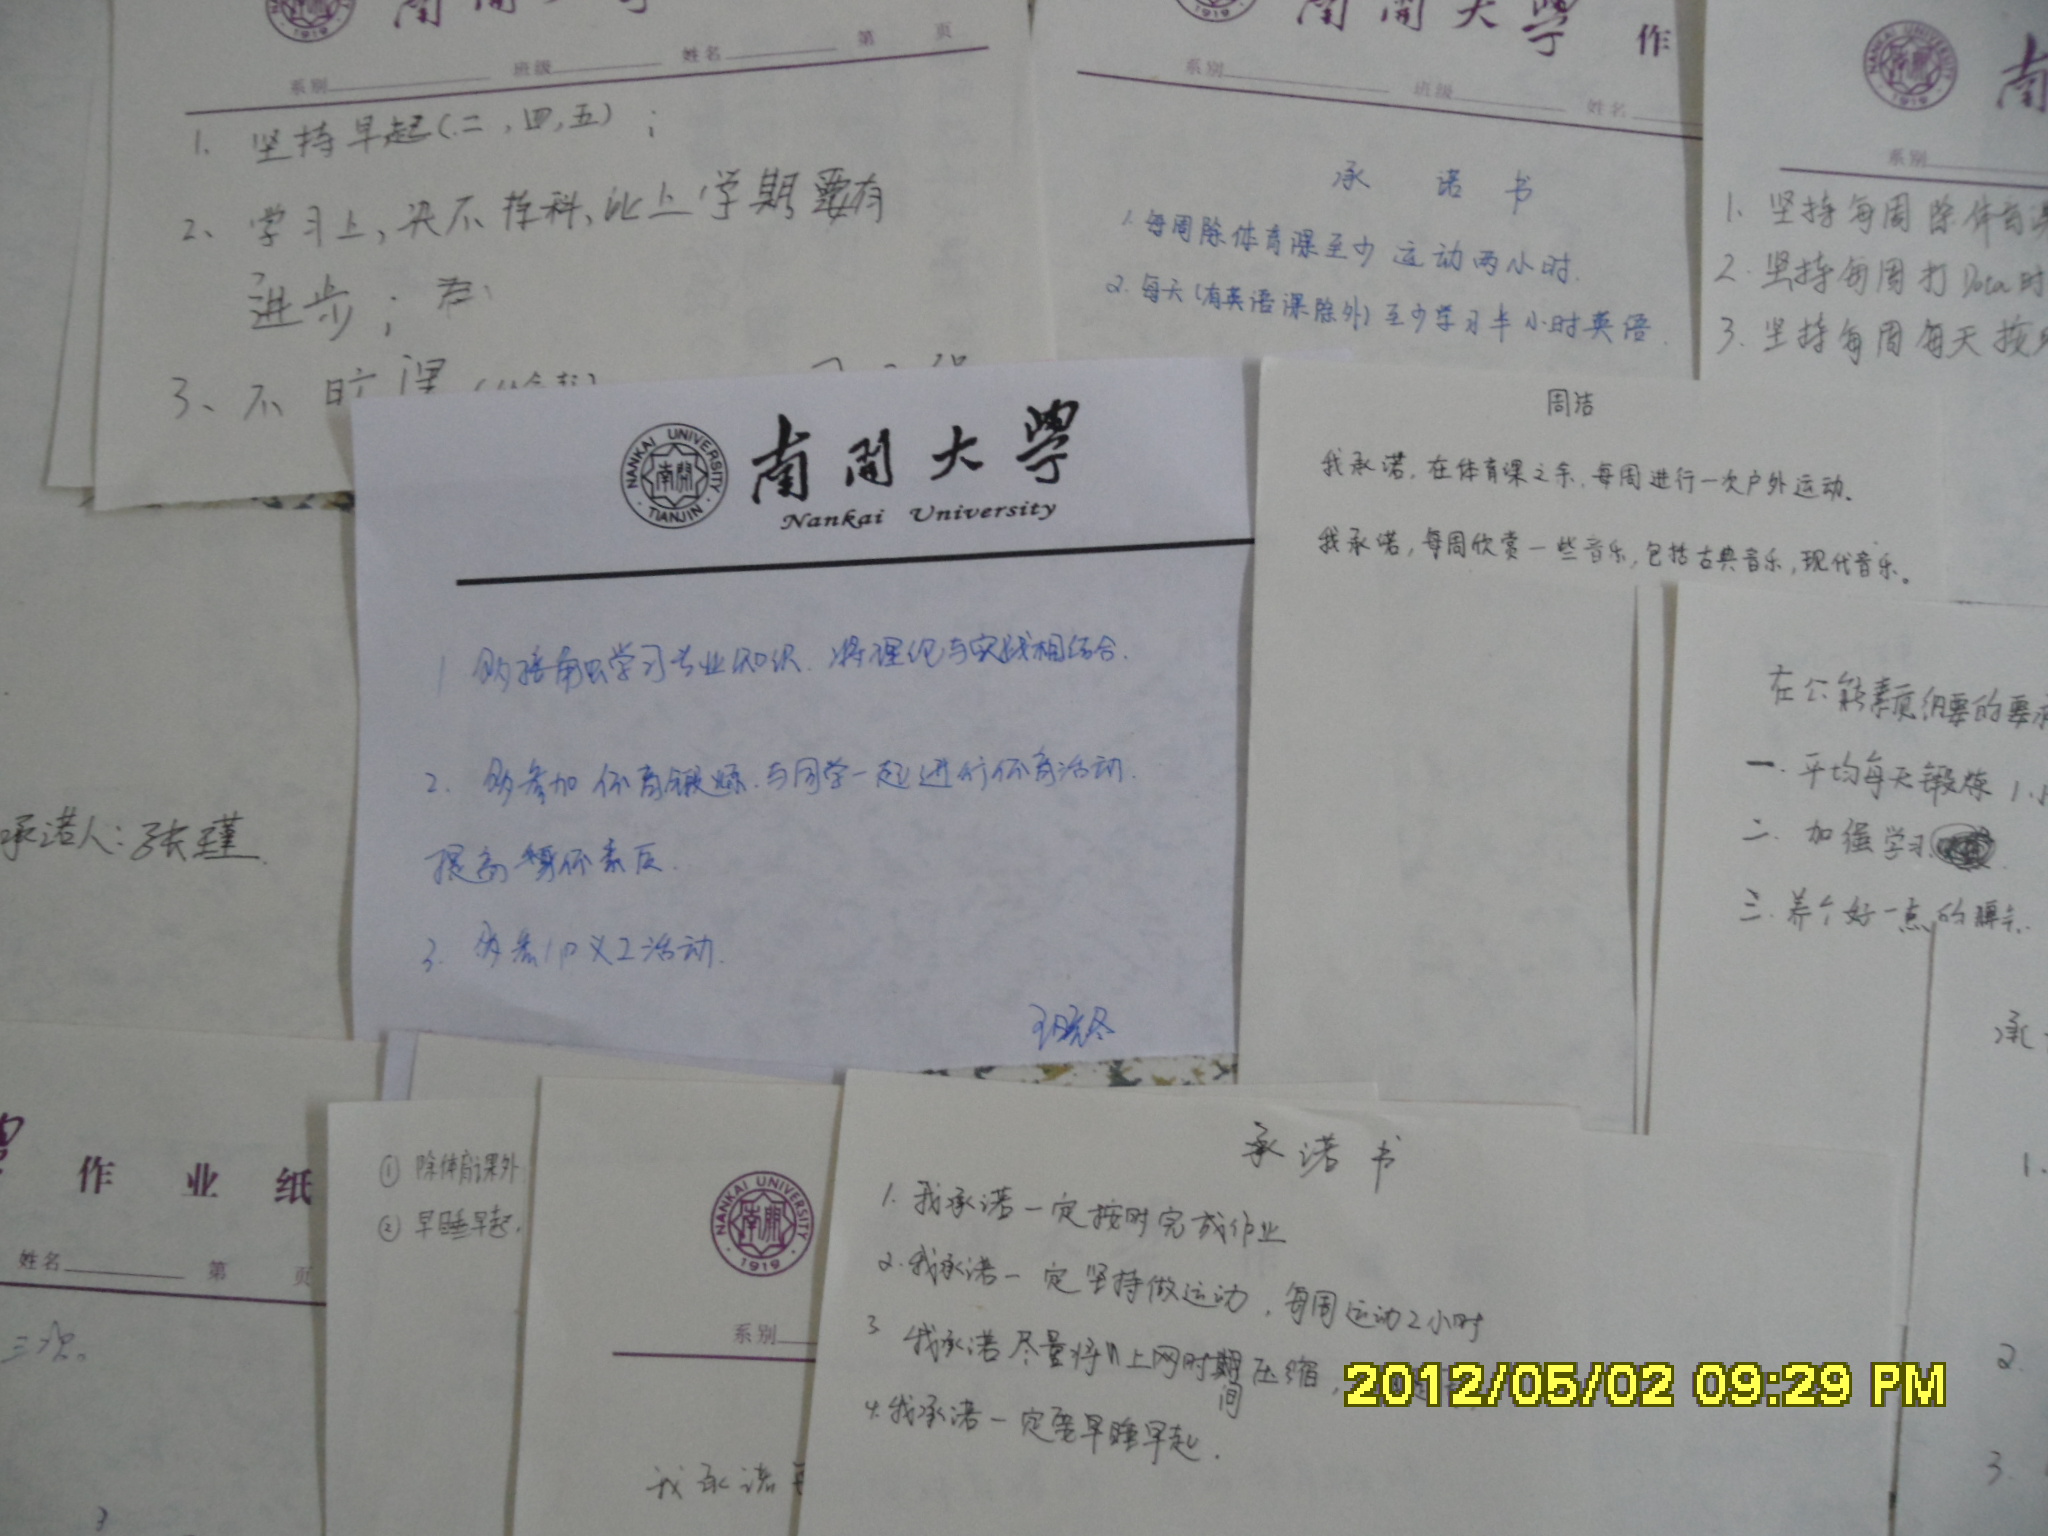 1919
南開大學
系别 班级 姓名 第 页
1. 坚持早起(二,四,五);
2、学习上,决不挂科,比上学期要有
进步;
3、不旷课
1919
南開大學 作
系别 班级 姓名
承 诺 书
1.每周除体育课至少运动两小时.
2.每天(有英语课除外)至少学习半小时英语.
NANKAI UNIVERSITY 1919
南
系别
1. 坚持每周除体育课
2. 坚持每周打Dota时
3. 坚持每周每天按
NANKAI UNIVERSITY 南開 TIANJIN
南開大學
Nankai University
1 积极学习专业知识.将理论与实践相结合.
2. 参加体育锻炼.与同学一起进行体育活动.
提高身体素质.
3. 义工活动.
周洁
我承诺,在体育课之余,每周进行一次户外运动.
我承诺,每周欣赏一些音乐,包括古典音乐,现代音乐。
在公能素质纲要的要求
一. 平均每天锻炼1.
二. 加强学习
三. 养个好一点的
承诺人:张瑾
承
1.
2.
3.
作 业 纸
姓名 第 页
三次。
3
① 除体育课外
② 早睡早起.
NANKAI UNIVERSITY 南開 1919
系别
我承诺
承诺书
1. 我承诺一定按时完成作业
2.我承诺一定坚持做运动,每周运动2小时
3 我承诺尽量将上网时间压缩,
4.我承诺一定要早睡早起.
2012/05/02 09:29 PM